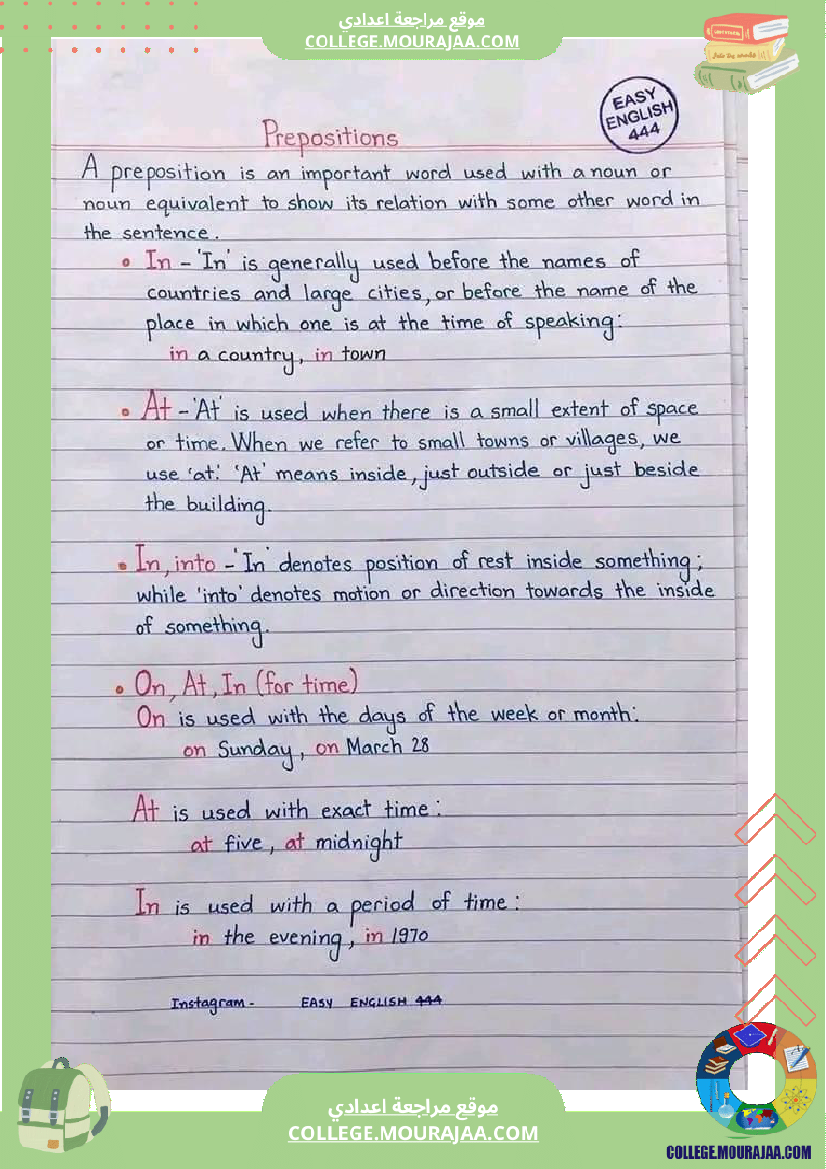 موقع مراجعة اعدادي
COLLEGE.MOURAJAA.COM
EASY
ENGLISH
444
Prepositions
A preposition is an important word used with a noun or
noun equivalent to show its relation with some other word in
the sentence.
• In - 'In' is generally used before the names of
countries and large cities, or before the name of the
place in which one is at the time of speaking:
in a country, in town
• At - 'At' is used when there is a small extent of space
or time. When we refer to small towns or villages, we
use 'at.' 'At' means inside, just outside or just beside
the building.
• In, into - 'In' denotes position of rest inside something;
while 'into' denotes motion or direction towards the inside
of something.
• On, At, In (for time)
On is used with the days of the week or month:
on Sunday, on March 28
At is used with exact time:
at five, at midnight
In is used with a period of time:
in the evening, in 1970
Instagram - EASY ENGLISH 444
موقع مراجعة اعدادي
COLLEGE.MOURAJAA.COM
COLLEGE.MOURAJAA.COM